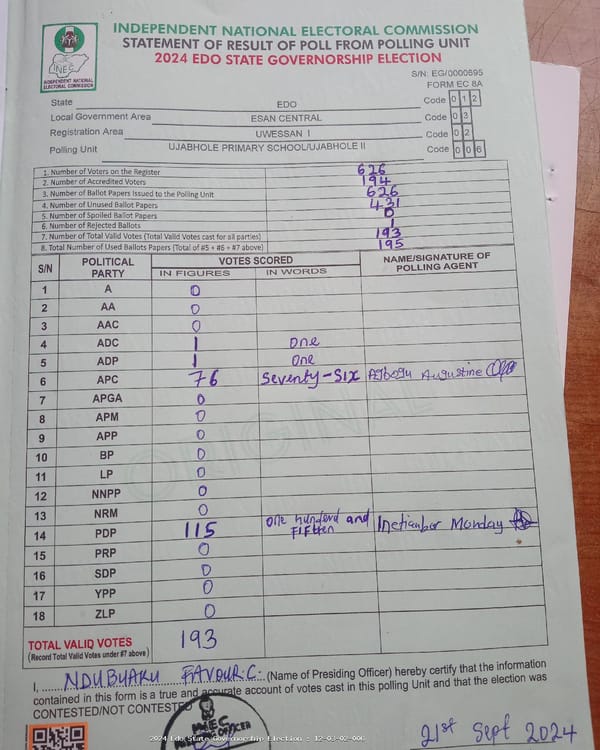 INDEPENDENT NATIONAL ELECTORAL COMMISSION
STATEMENT OF RESULT OF POLL FROM POLLING UNIT
2024 EDO STATE GOVERNORSHIP ELECTION
INEC
INDEPENDENT NATIONAL ELECTORAL COMMISSION
S/N: EG/0000695
FORM EC 8A
State EDO Code 0 1 2
Local Government Area ESAN CENTRAL Code 0 3
Registration Area UWESSAN I Code 0 2
Polling Unit UJABHOLE PRIMARY SCHOOL/UJABHOLE II Code 0 0 6
1. Number of Voters on the Register 626
2. Number of Accredited Voters 194
3. Number of Ballot Papers Issued to the Polling Unit 626
4. Number of Unused Ballot Papers 431
5. Number of Spoiled Ballot Papers 0
6. Number of Rejected Ballots 1
7. Number of Total Valid Votes (Total Valid Votes cast for all parties) 193
8. Total Number of Used Ballots Papers (Total of #5 + #6 + #7 above) 195
S/N POLITICAL PARTY VOTES SCORED NAME/SIGNATURE OF POLLING AGENT
IN FIGURES IN WORDS
1 A 0
2 AA 0
3 AAC 0
4 ADC 1 One
5 ADP 1 One
6 APC 76 Seventy-Six Augustine
7 APGA 0
8 APM 0
9 APP 0
10 BP 0
11 LP 0
12 NNPP 0
13 NRM 0
14 PDP 115 One hundred and FIFteen Monday
15 PRP 0
16 SDP 0
17 YPP 0
18 ZLP 0
ORIGINAL
TOTAL VALID VOTES 193
(Record Total Valid Votes under #7 above)
I, NDUBUAKU FAVOUR.C. (Name of Presiding Officer) hereby certify that the information
contained in this form is a true and accurate account of votes cast in this polling Unit and that the election was
CONTESTED/NOT CONTESTED
INEC
21st Sept 2024
2024 Edo State Governorship Election : 12-03-02-006